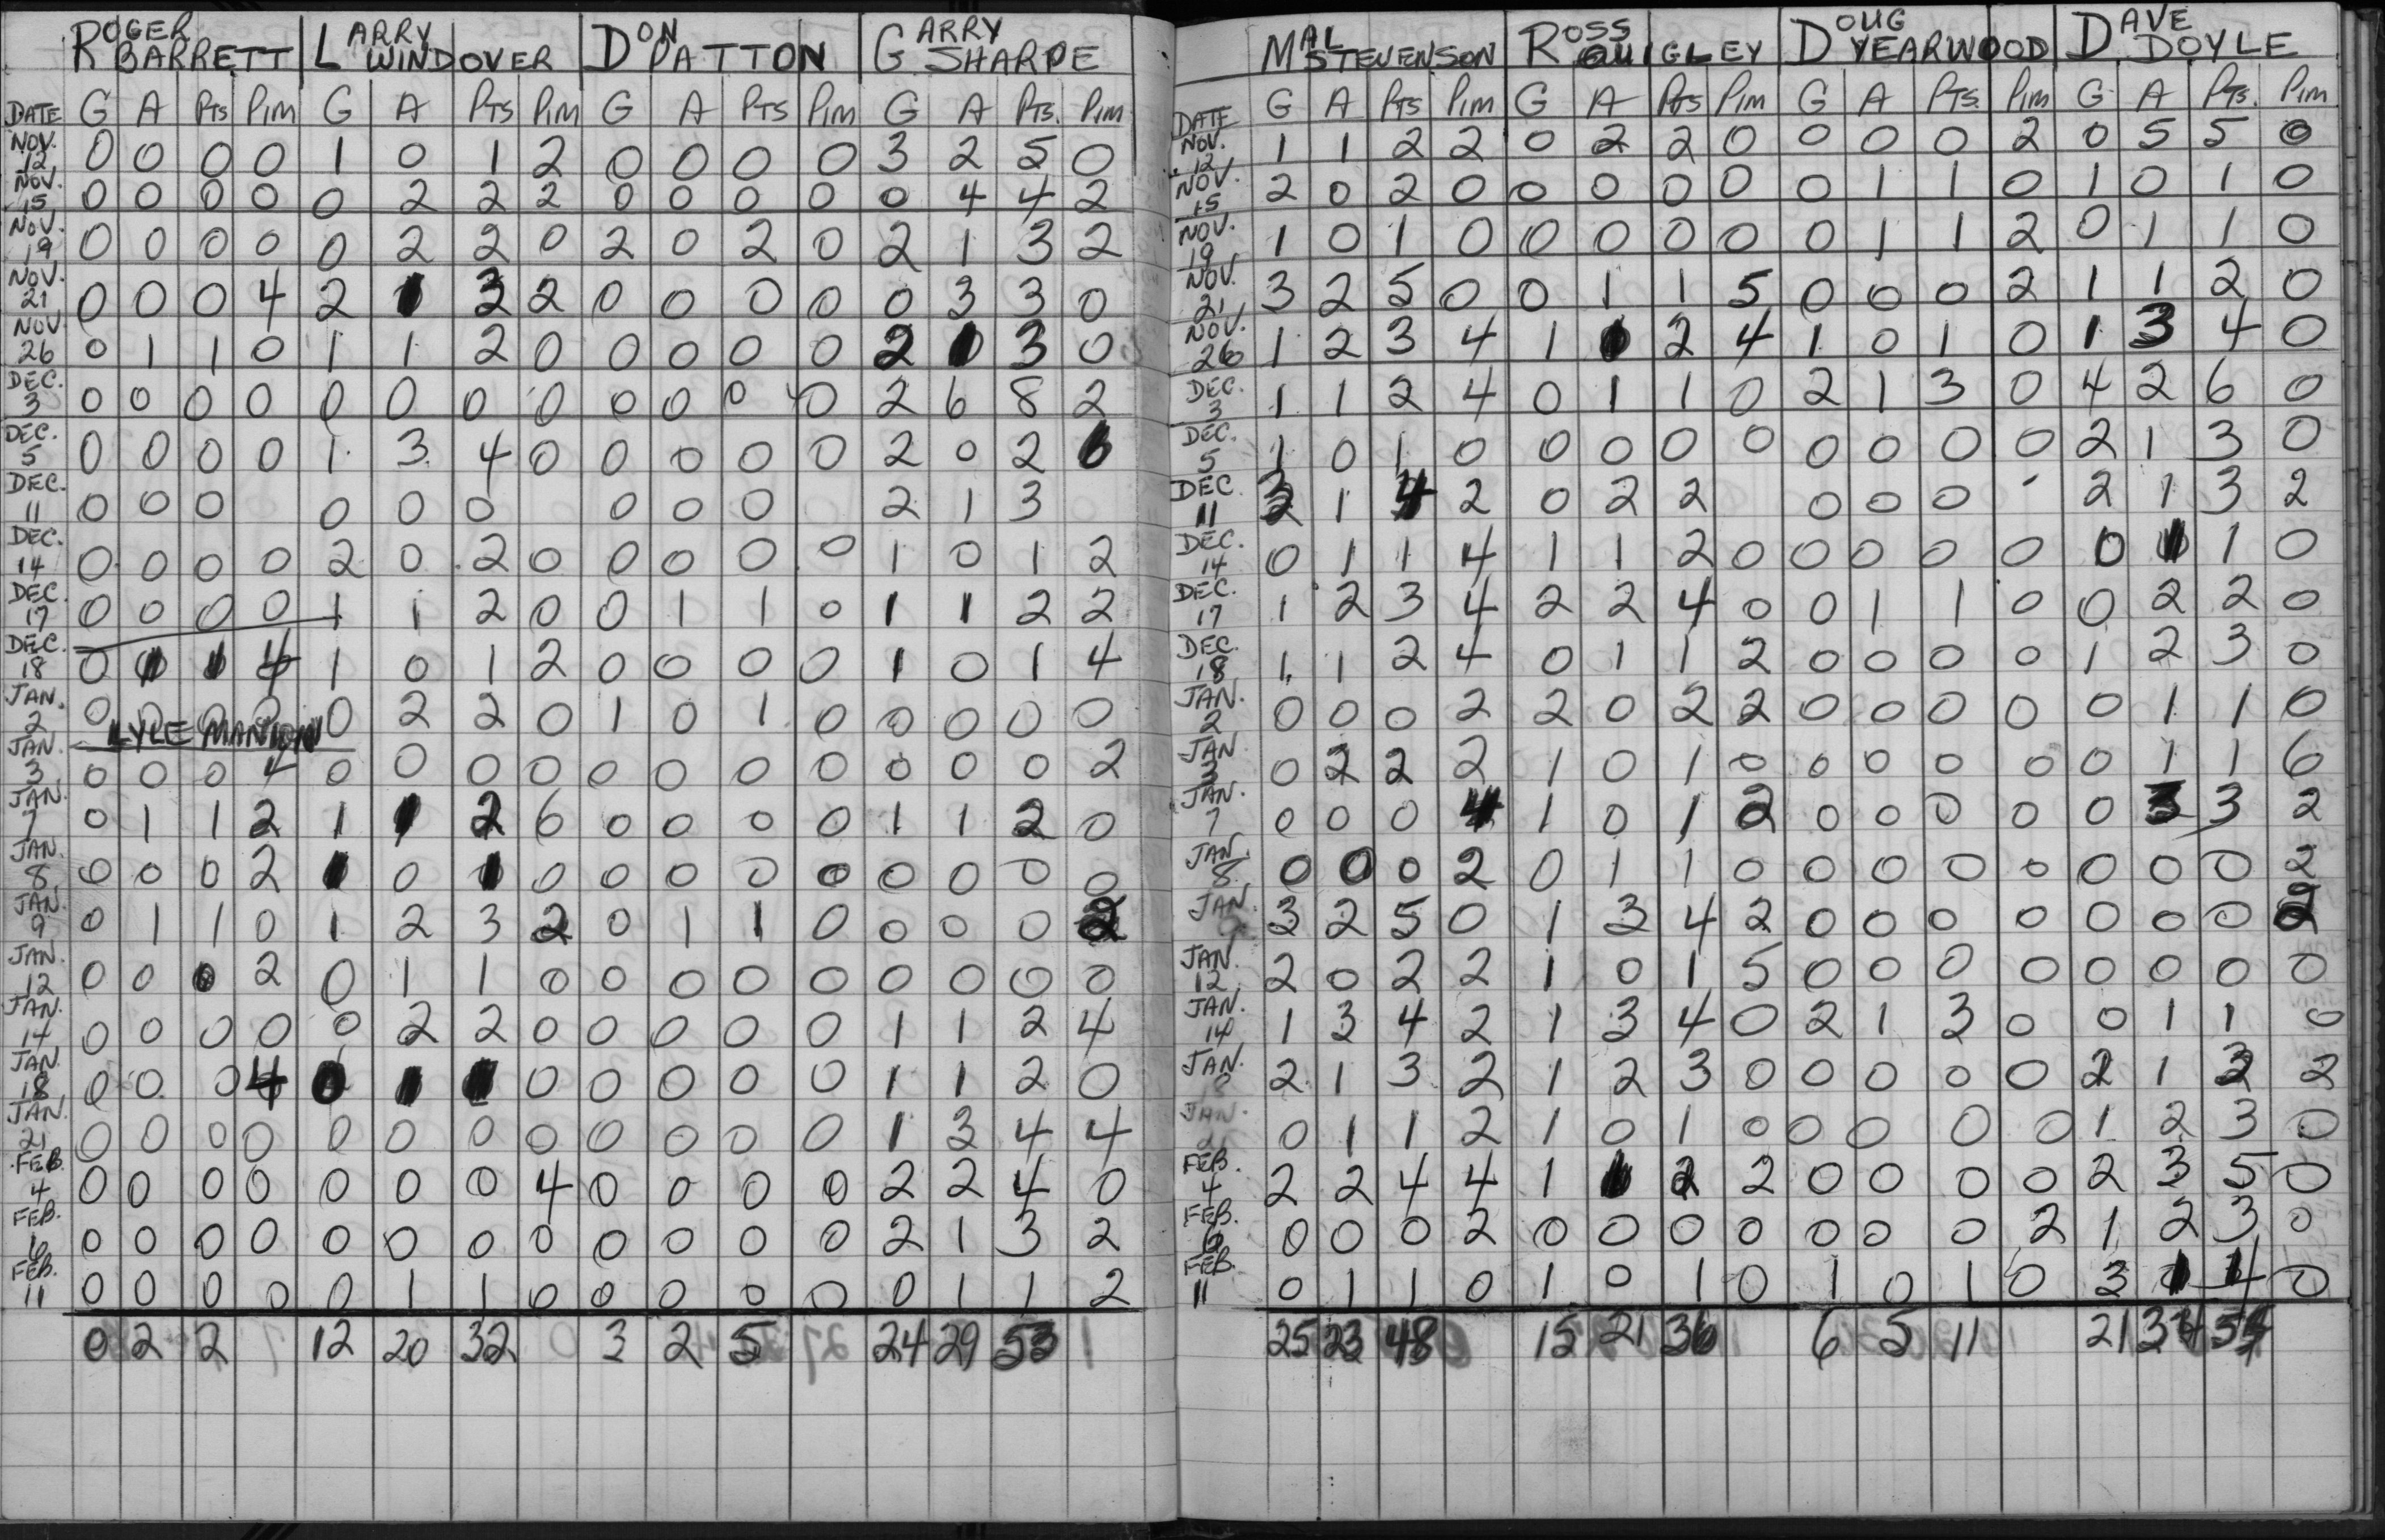 ROGER BARRETT LARRY WINDOVER DON PATTON GARRY SHARPE
DATE G A PTS PIM G A PTS PIM G A PTS PIM G A PTS. PIM
NOV. 12 0 0 0 0 1 0 1 2 0 0 0 0 3 2 5 0
NOV. 15 0 0 0 0 0 2 2 2 0 0 0 0 0 4 4 2
NOV. 19 0 0 0 0 0 2 2 0 2 0 2 0 2 1 3 2
NOV. 21 0 0 0 4 2 1 3 2 0 0 0 0 0 3 3 0
NOV 26 0 1 1 0 1 1 2 0 0 0 0 0 2 1 3 0
DEC. 3 0 0 0 0 0 0 0 0 0 0 0 0 2 6 8 2
DEC. 5 0 0 0 0 1 3 4 0 0 0 0 0 2 0 2
DEC. 11 0 0 0 0 0 0 0 0 0 2 1 3
DEC. 14 0 0 0 0 2 0 2 0 0 0 0 0 1 0 1 2
DEC. 17 0 0 0 0 1 1 2 0 0 1 1 0 1 1 2 2
DEC. 18 0 1 1 4 1 0 1 2 0 0 0 0 1 0 1 4
JAN. 2 0 0 0 0 0 2 2 0 1 0 1 0 0 0 0 0
LYLE MANION
JAN. 3 0 0 0 4 0 0 0 0 0 0 0 0 0 0 0 2
JAN. 7 0 1 1 2 1 1 2 6 0 0 0 0 1 1 2 0
JAN. 8 0 0 0 2 1 0 1 0 0 0 0 0 0 0 0 0
JAN. 9 0 1 1 0 1 2 3 2 0 1 1 0 0 0 0 2
JAN. 12 0 0 0 2 0 1 1 0 0 0 0 0 0 0 0 0
JAN. 14 0 0 0 0 0 2 2 0 0 0 0 0 1 1 2 4
JAN. 18 0 0 0 4 0 1 1 0 0 0 0 0 1 1 2 0
JAN. 21 0 0 0 0 0 0 0 0 0 0 0 0 1 3 4 4
FEB. 4 0 0 0 0 0 0 0 4 0 0 0 0 2 2 4 0
FEB. 6 0 0 0 0 0 0 0 0 0 0 0 0 2 1 3 2
FEB. 11 0 0 0 0 0 1 1 0 0 0 0 0 0 1 1 2
0 2 2 12 20 32 3 2 5 24 29 53
MAL STEVENSON ROSS QUIGLEY DOUG YEARWOOD DAVE DOYLE
DATE G A PTS PIM G A PTS PIM G A PTS. PIM G A PTS. PIM
NOV. 12 1 1 2 2 0 2 2 0 0 0 0 2 0 5 5 0
NOV. 15 2 0 2 0 0 0 0 0 0 1 1 0 1 0 1 0
NOV. 19 1 0 1 0 0 0 0 0 0 1 1 2 0 1 1 0
NOV. 21 3 2 5 0 0 1 1 5 0 0 0 2 1 1 2 0
NOV. 26 1 2 3 4 1 1 2 4 1 0 1 0 1 3 4 0
DEC. 3 1 1 2 4 0 1 1 0 2 1 3 0 4 2 6 0
DEC. 5 1 0 1 0 0 0 0 0 0 0 0 0 2 1 3 0
DEC. 11 3 1 4 2 0 2 2 0 0 0 2 1 3 2
DEC. 14 0 1 1 4 1 1 2 0 0 0 0 0 0 1 1 0
DEC. 17 1 2 3 4 2 2 4 0 0 1 1 0 0 2 2 0
DEC. 18 1 1 2 4 0 1 1 2 0 0 0 0 1 2 3 0
JAN. 2 0 0 0 2 2 0 2 2 0 0 0 0 0 1 1 0
JAN 3 0 2 2 2 1 0 1 0 0 0 0 0 0 1 1 6
JAN. 7 0 0 0 4 1 0 1 2 0 0 0 0 0 3 3 2
JAN. 8 0 0 0 2 0 1 1 0 0 0 0 0 0 0 0 2
JAN. 3 2 5 0 1 3 4 2 0 0 0 0 0 0 0 2
JAN. 12 2 0 2 2 1 0 1 5 0 0 0 0 0 0 0 0
JAN. 14 1 3 4 2 1 3 4 0 2 1 3 0 0 1 1 0
JAN. 2 1 3 2 1 2 3 0 0 0 0 0 2 1 3 2
JAN. 0 1 1 2 1 0 1 0 0 0 0 0 1 2 3 0
FEB. 4 2 2 4 4 1 1 2 2 0 0 0 0 2 3 5 0
FEB. 6 0 0 0 2 0 0 0 0 0 0 0 2 1 2 3 0
FEB. 11 0 1 1 0 1 0 1 0 1 0 1 0 3 1 4 0
25 23 48 15 21 36 6 5 11 21